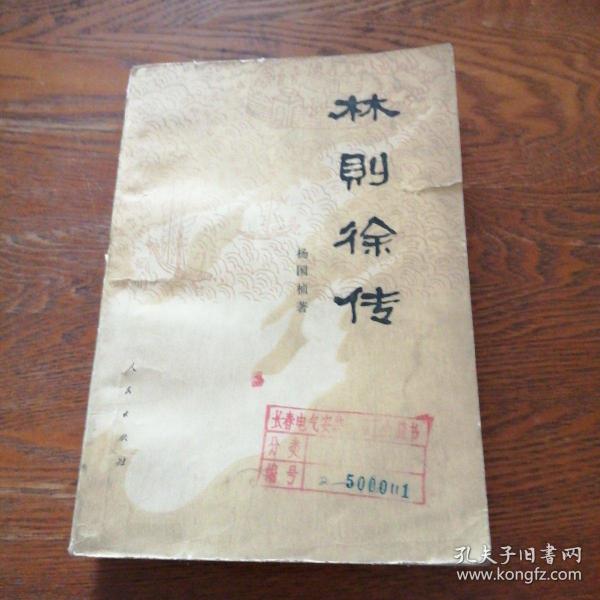 林則徐传
杨国桢 著
人民出版社
长春电气安 书
分类
编号 50001
孔夫子旧書网
www.kongfz.com